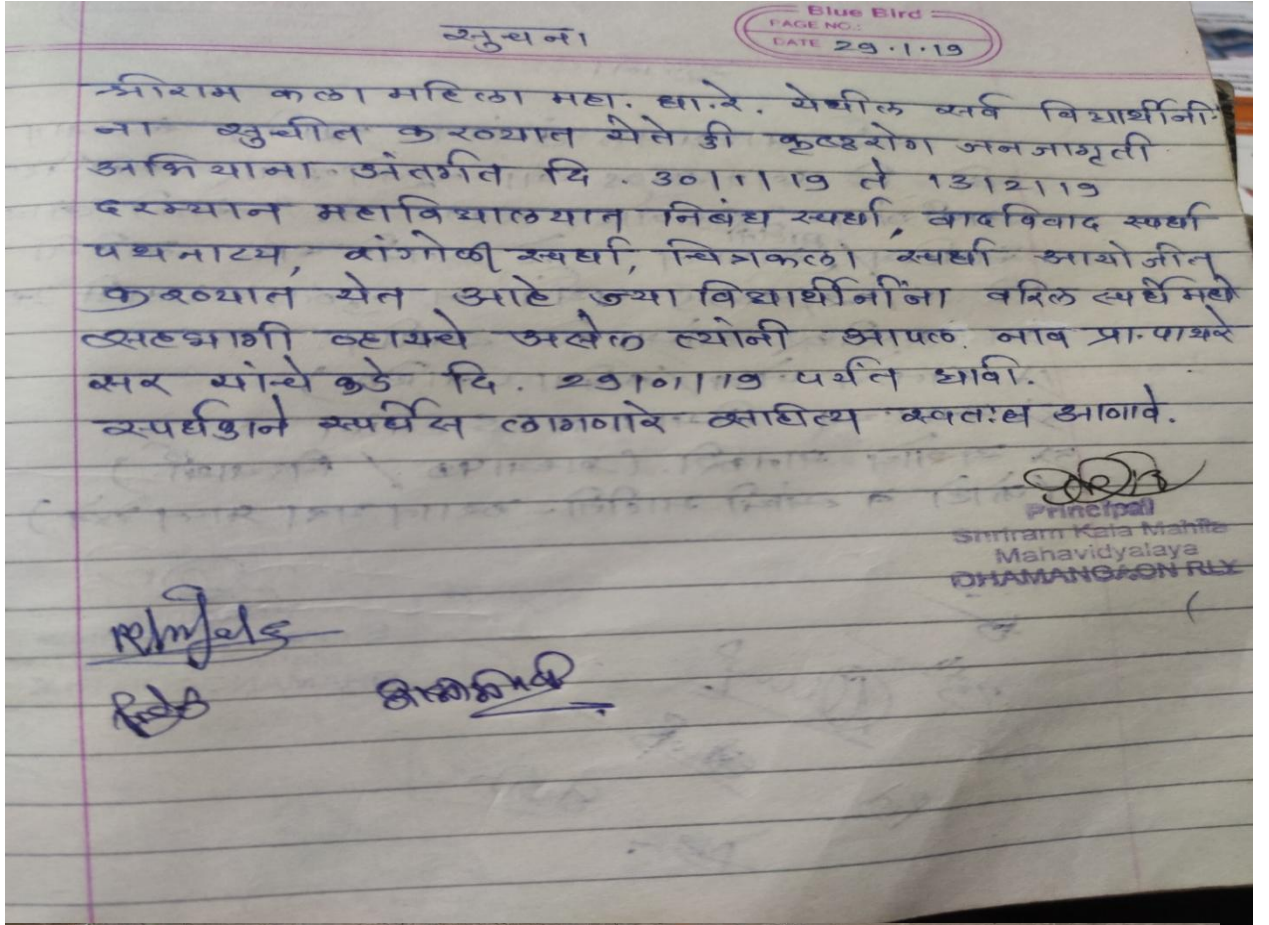 Blue Bird
PAGE NO.:
DATE 29.1.19
सुचना
श्रीराम कला महिला महा. धा.रे. येथील सर्व विद्यार्थीनीं
ना सुचीत करण्यात येते की कृष्ठरोग जनजागृती
अभियाना अंतर्गत दि. 30/1/19 ते 13/2/19
दरम्यान महाविद्यालयात निबंध स्पर्धा, वादविवाद स्पर्धा
पथनाट्य, रांगोळी स्पर्धा, चित्रकला स्पर्धा आयोजीत
करण्यात येत आहे ज्या विद्यार्थीनींना वरिल स्पर्धेमधे
सहभागी व्हायचे असेल त्यांनी आपल नाव प्रा. पाथरे
सर यांचे कडे दि. 29/01/19 पर्यंत द्यावी.
स्पर्धकाने स्पर्धेस लागणारे साहित्य स्वतःच आणावे.
Principal
Shriram Kala Mahila
Mahavidyalaya
DHAMANGAON RLY